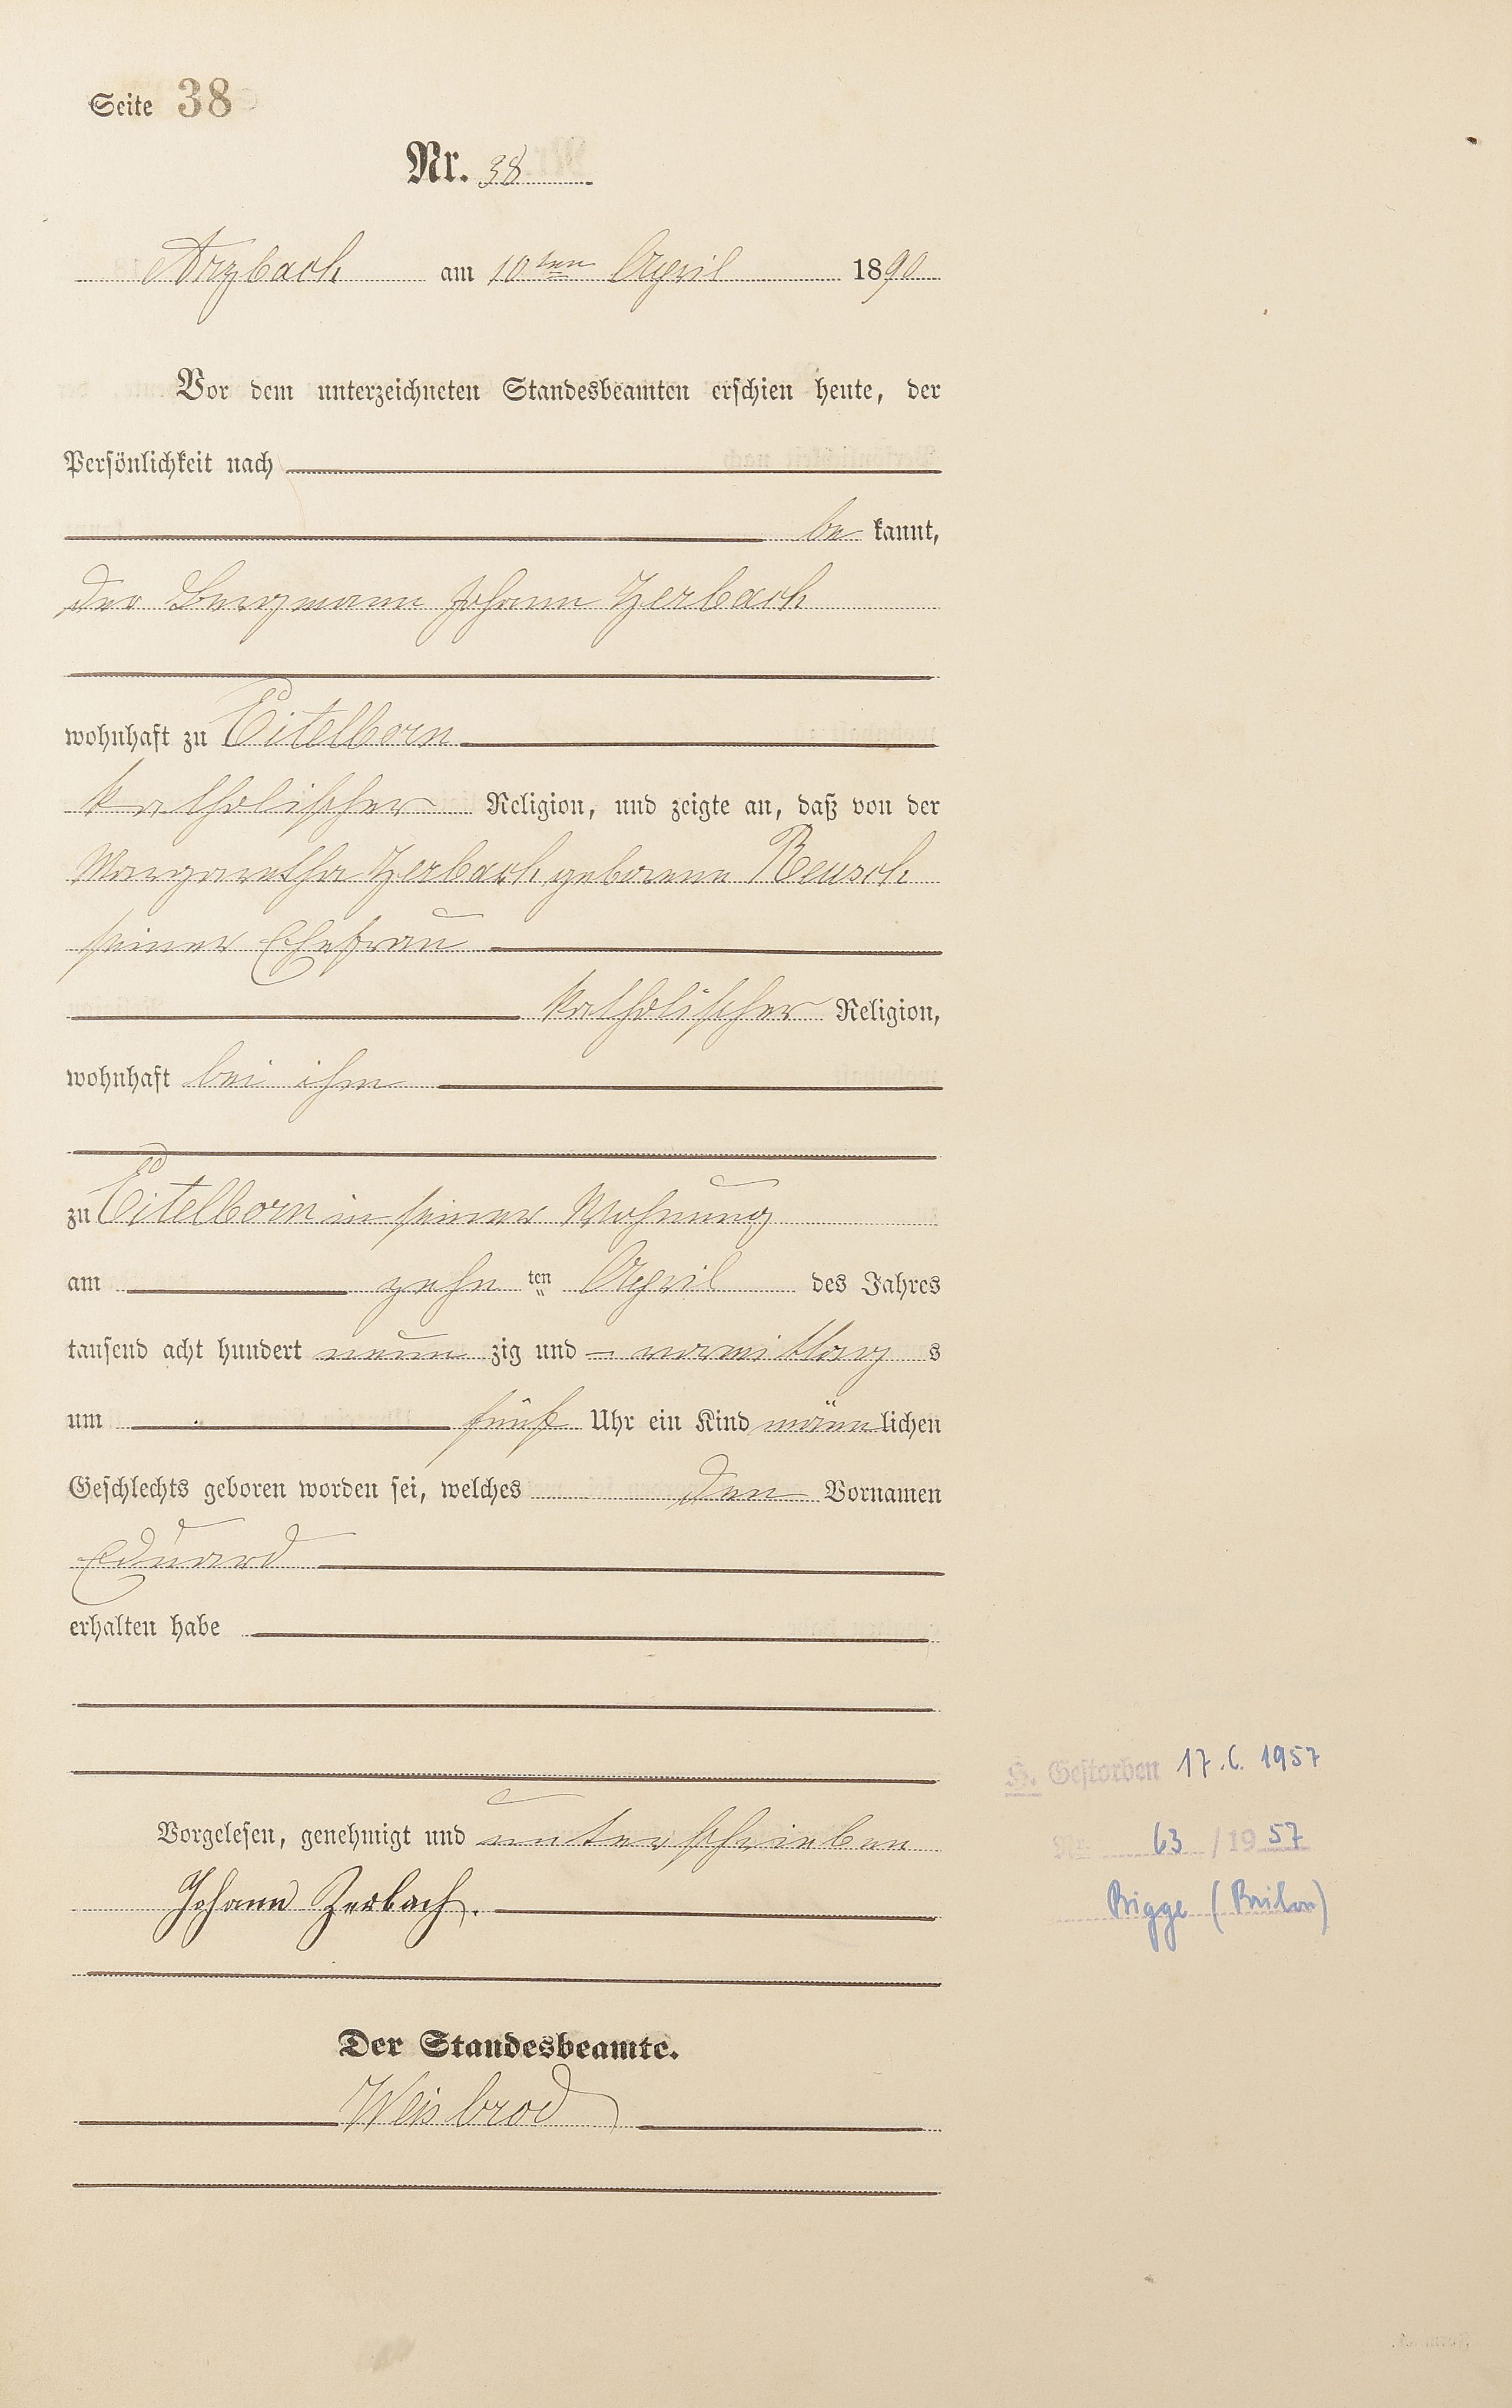 Seite 38
Nr. 38
Arzbach am 10ten April 1890
Vor dem unterzeichneten Standesbeamten erschien heute, der
Persönlichkeit nach
be kannt,
der Bergmann Johann Zerbach
wohnhaft zu Eitelborn
katholischer Religion, und zeigte an, daß von der
Margaretha Zerbach geborene Reusch
seiner Ehefrau
katholischer Religion,
wohnhaft bei ihm
zu Eitelborn in seiner Wohnung
am zehn ten April des Jahres
tausend acht hundert neun zig und – vormittag s
um fünf Uhr ein Kind männlichen
Geschlechts geboren worden sei, welches den Vornamen
Eduard
erhalten habe
Vorgelesen, genehmigt und unterschrieben
Johann Zerbach.
Der Standesbeamte.
Weisbrod
H. Gestorben 17.6. 1957
Nr. 63 / 19 57
Bigge (Brilon)